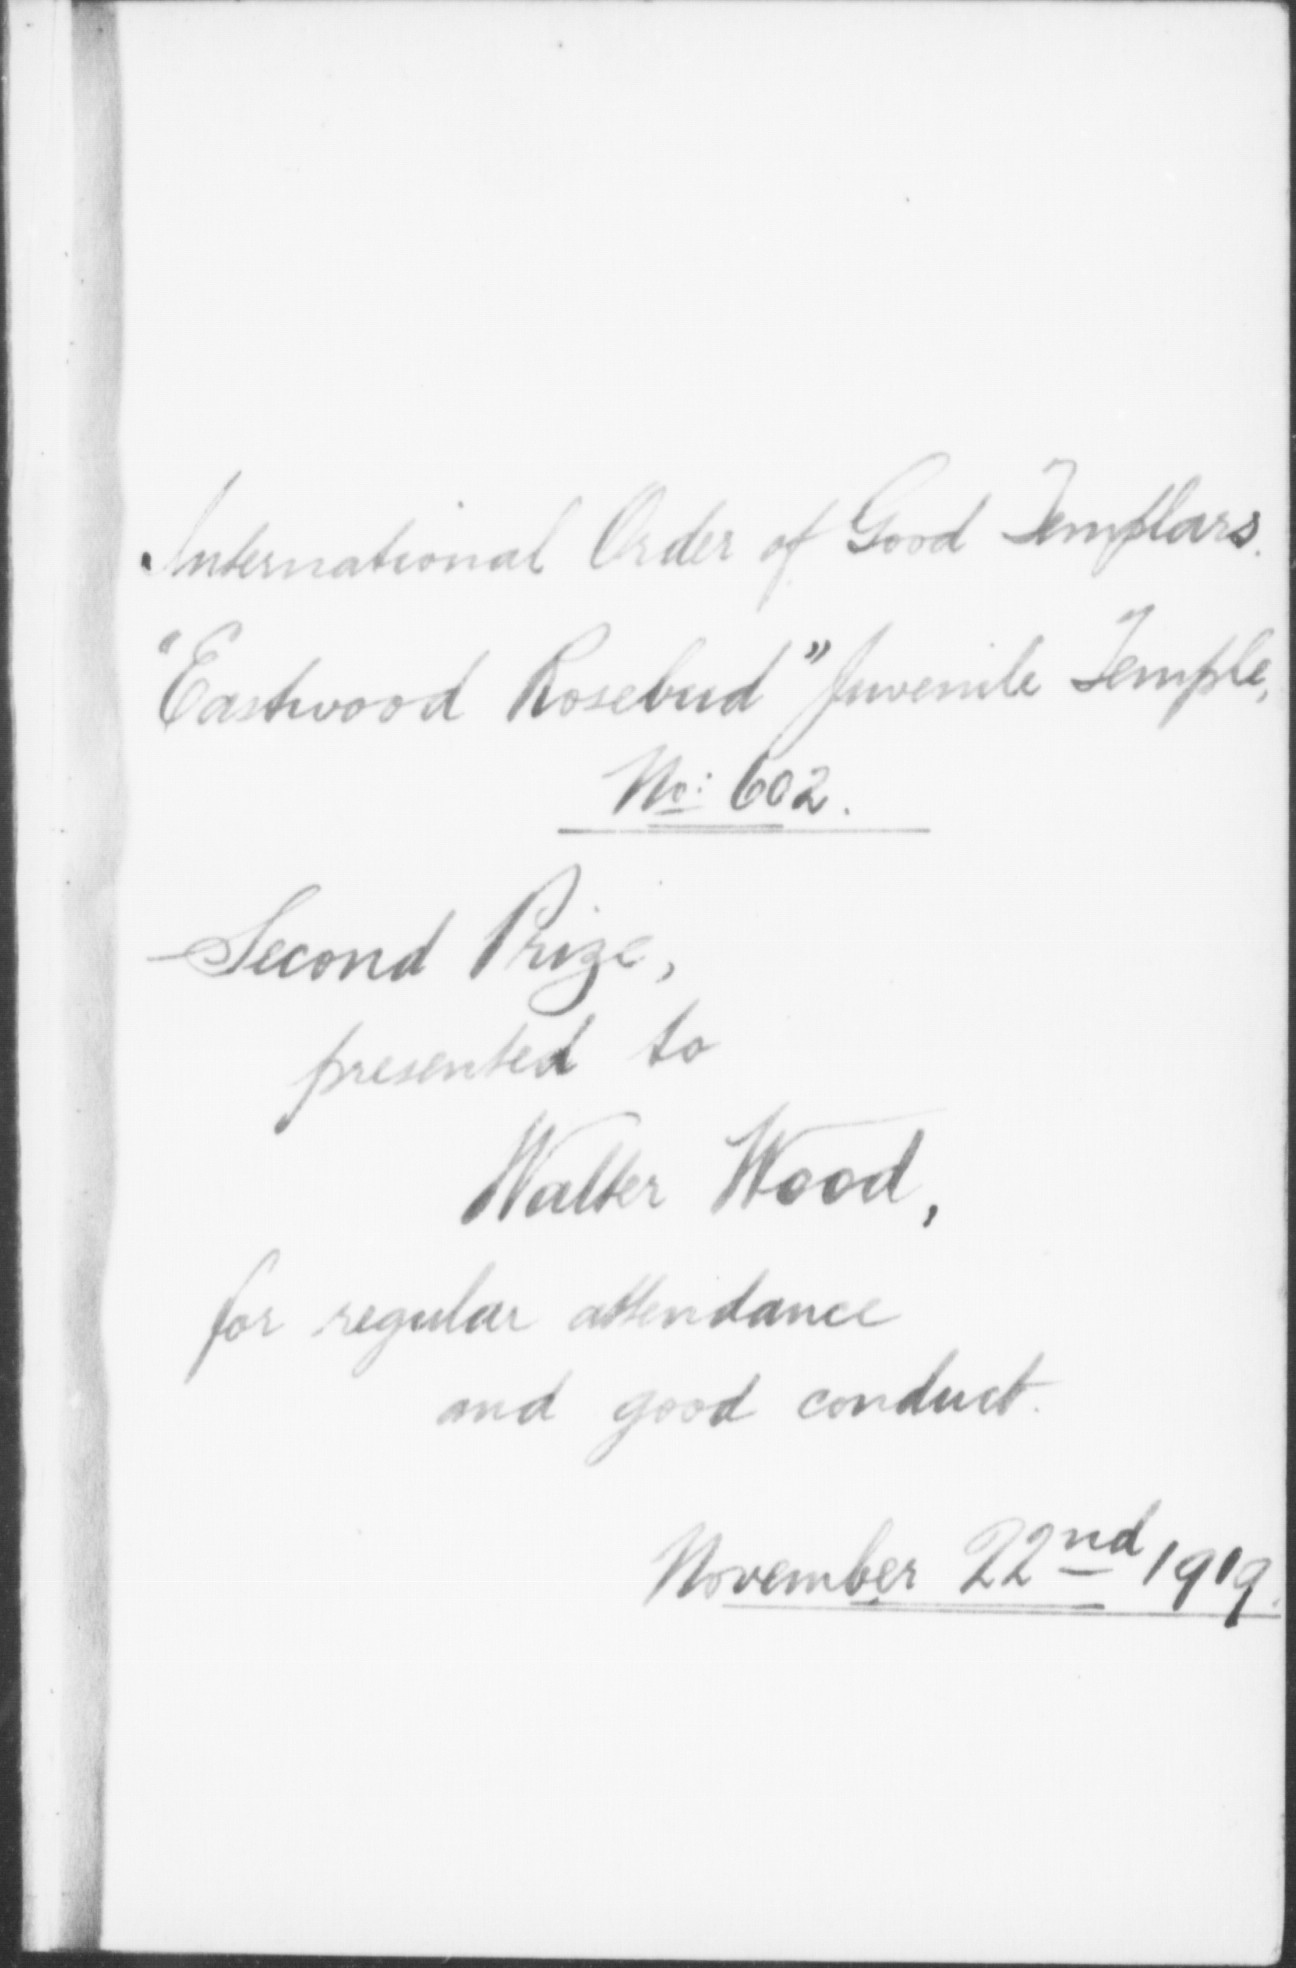 International Order of Good Templars.
"Eastwood Rosebud" Juvenile Temple,
No: 602.
Second Prize,
presented to
Walter Wood,
for regular attendance
and good conduct.
November 22nd 1919.